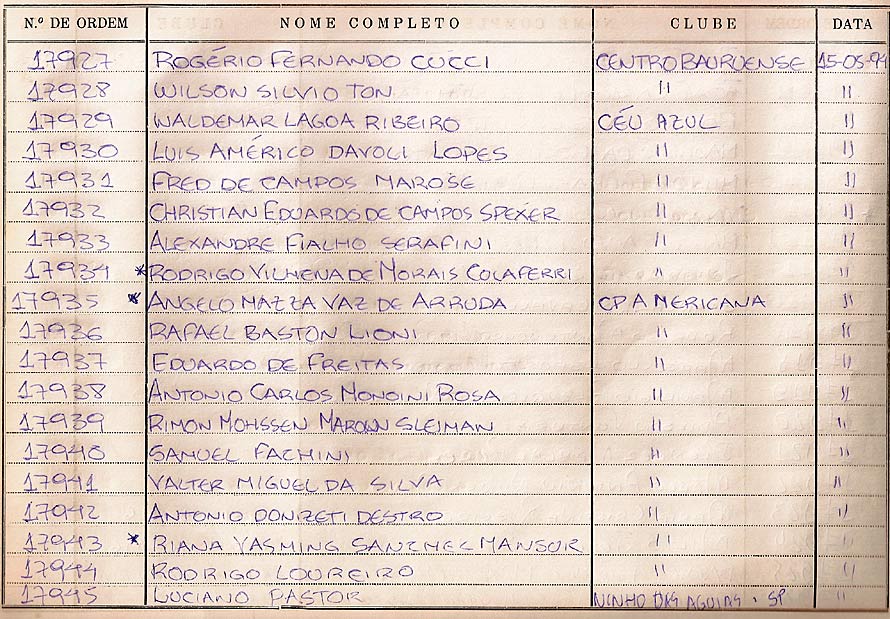 N.º DE ORDEM NOME COMPLETO CLUBE DATA
17927 ROGÉRIO FERNANDO CUCCI CENTRO BAURUENSE 15-05-94
17928 WILSON SILVIO TON " "
17929 WALDEMAR LAGOA RIBEIRO CÉU AZUL "
17930 LUIS AMÉRICO DAVOLI LOPES " "
17931 FRED DE CAMPOS MAROSE " "
17932 CHRISTIAN EDUARDO DE CAMPOS SPEXER " "
17933 ALEXANDRE FIALHO SERAFINI " "
17934 * RODRIGO VILHENA DE MORAIS COLAFERRI " "
17935 * ANGELO MAZZA VAZ DE ARRUDA CP AMERICANA "
17936 RAFAEL BASTON LIONI " "
17937 EDUARDO DE FREITAS " "
17938 ANTONIO CARLOS MONDINI ROSA " "
17939 RIMON MOHSSEN MAROUN SLEIMAN " "
17940 SAMUEL FACHINI " "
17941 VALTER MIGUEL DA SILVA " "
17942 ANTONIO DONIZETI DESTRO " "
17943 * RIANA YASMING SANCHEZ MANSUR " "
17944 RODRIGO LOUREIRO " "
17945 LUCIANO PASTOR NINHO DAS AGUIAS - SP "